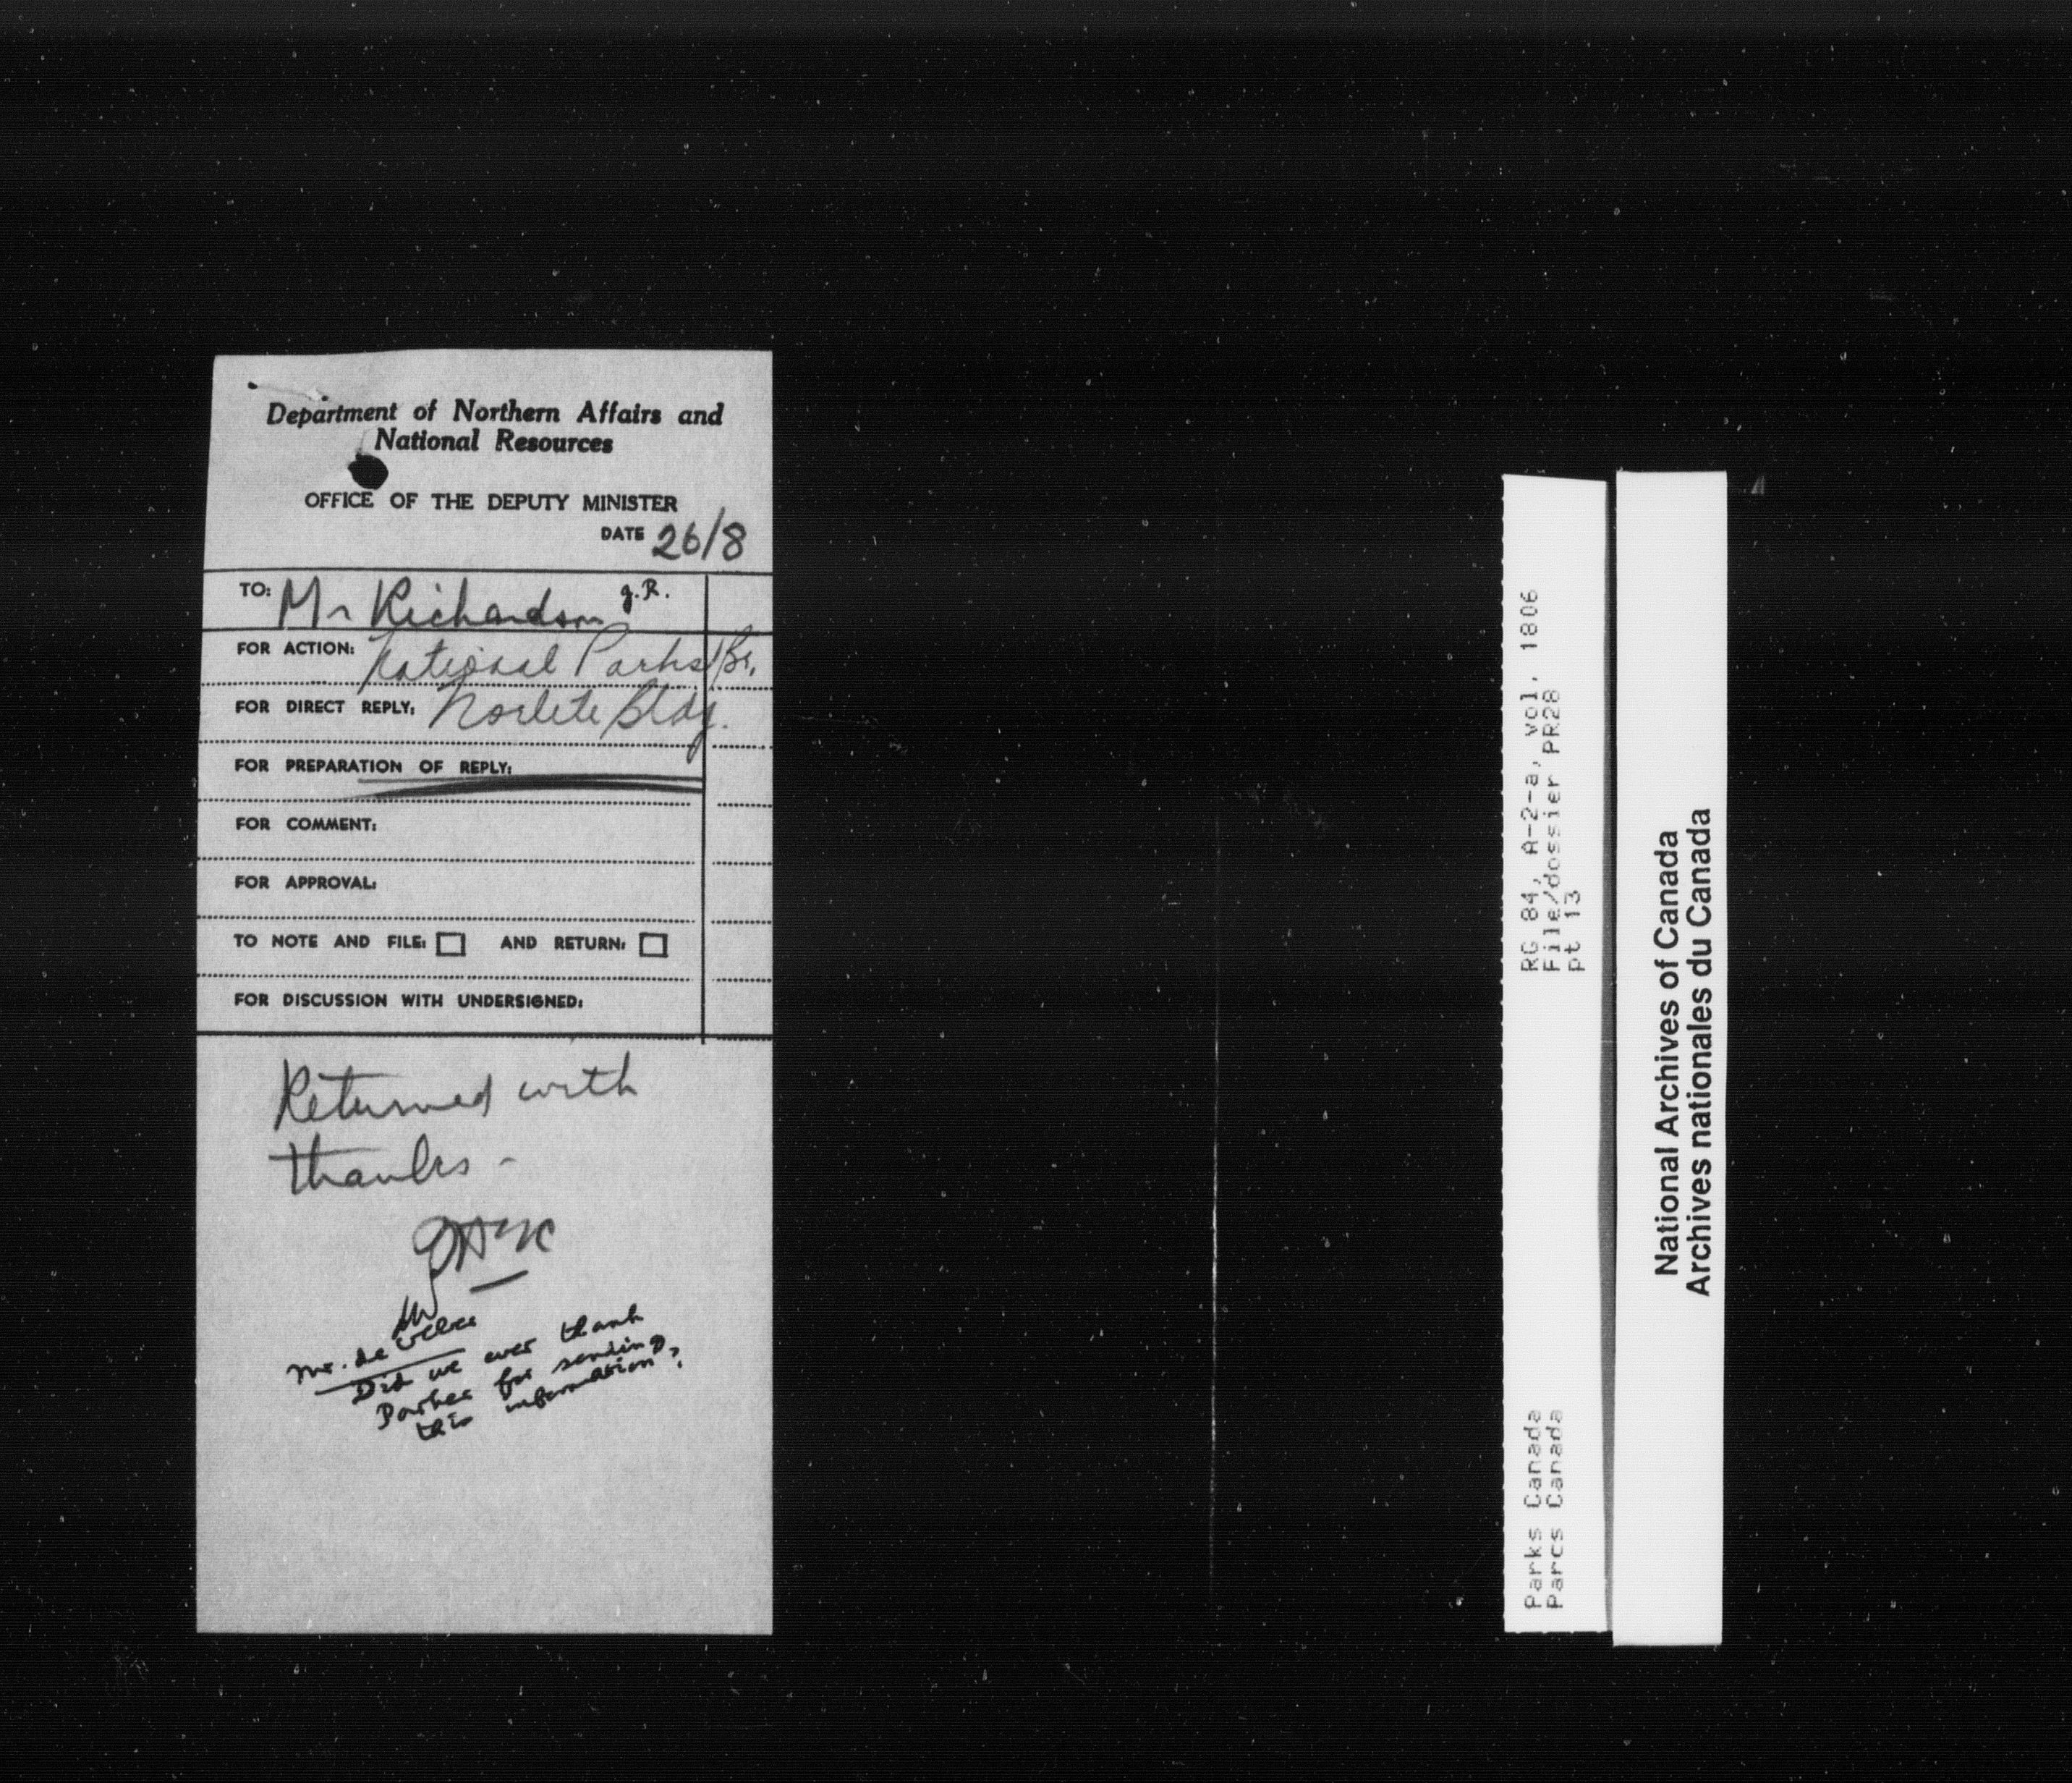 Department of Northern Affairs and
National Resources
OFFICE OF THE DEPUTY MINISTER
DATE 26/8
TO: Mr Richardson J.R.
FOR ACTION: National Parks Br.
FOR DIRECT REPLY: Norlite Bldg.
FOR PREPARATION OF REPLY:
FOR COMMENT:
FOR APPROVAL:
TO NOTE AND FILE: AND RETURN:
FOR DISCUSSION WITH UNDERSIGNED:
Returned with
thanks -
Mr. de
Did we ever thank
Parker for sending
this information?
RG 84, A-2-a, vol. 1806
File/dossier PR28
pt 13
Parks Canada
Parcs Canada
National Archives of Canada
Archives nationales du Canada